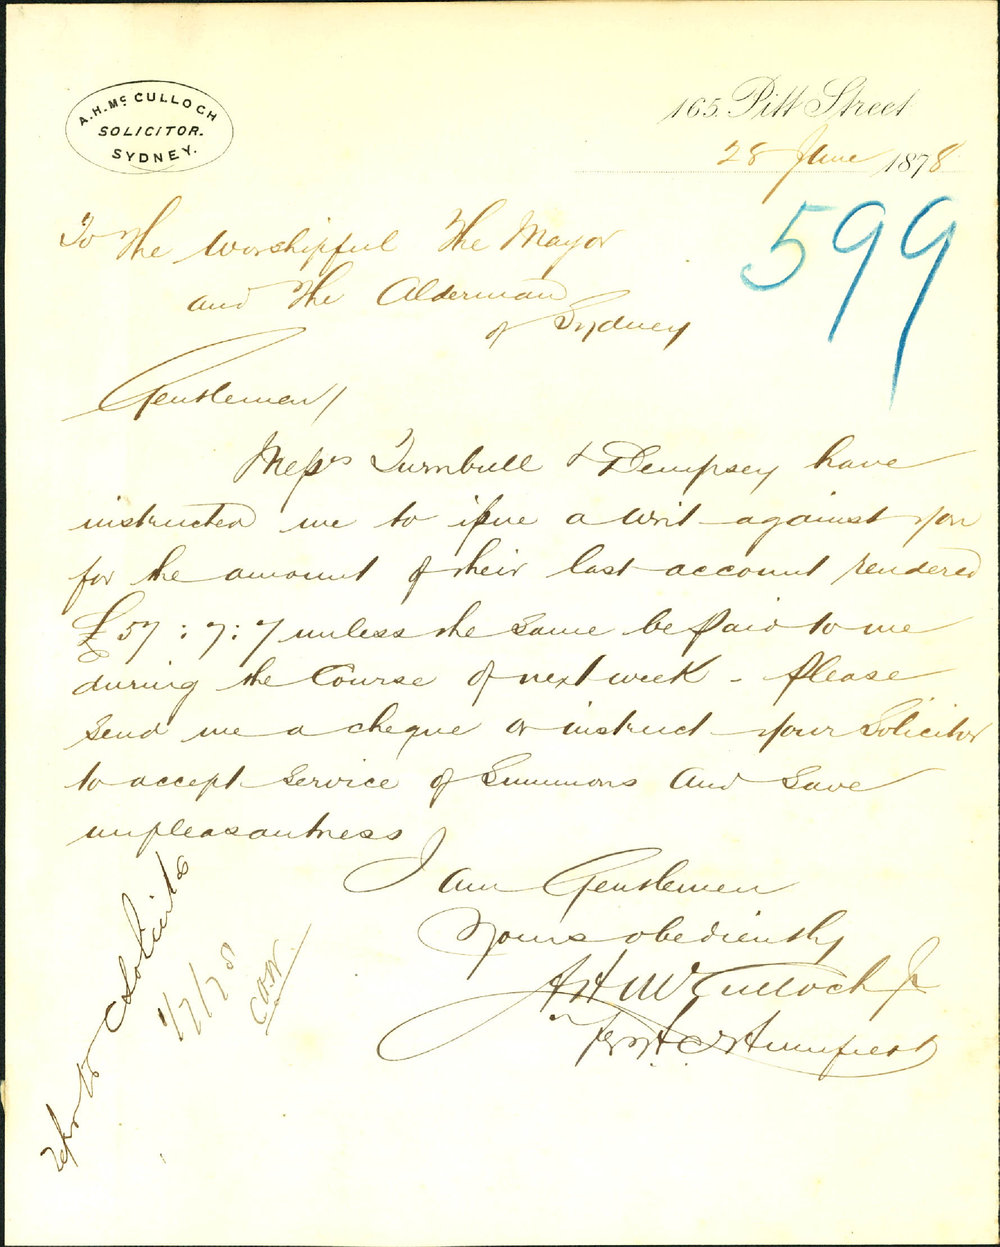 A. H. Mc CULLOCH
SOLICITOR.
SYDNEY.
165. Pitt Street
28 June 1878
599
To The Worshipful The Mayor
and The Alderman
of Sydney
Gentlemen/
Messrs Turnbull & Dempsey have
instructed me to issue a writ against you
for the amount of their last account rendered
£57:7:7 unless the same be paid to me
during the Course of next week - Please
send me a cheque or instruct your Solicitor
to accept service of Summons and save
unpleasantness
I am Gentlemen
Yours obediently
A H McCulloch Jr
Refer to Solicitor
1/7/78